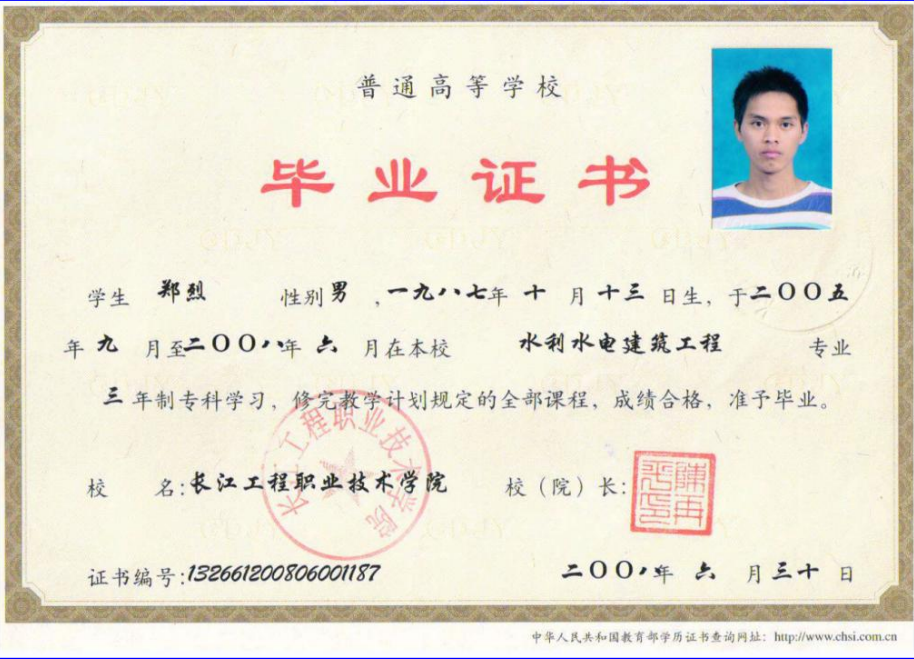 普通高等学校
毕业证书
学生 郑烈 性别 男 ,一九八七年 十 月 十三 日生, 于二〇〇五
年 九 月至二〇〇八年 六 月在本校 水利水电建筑工程 专业
三 年制专科学习, 修完教学计划规定的全部课程, 成绩合格, 准予毕业。
长江工程职业技术学院
校 名:长江工程职业技术学院 校(院)长:
证书编号:132661200806001187 二〇〇八年 六 月三十日
中华人民共和国教育部学历证书查询网址: http://www.chsi.com.cn